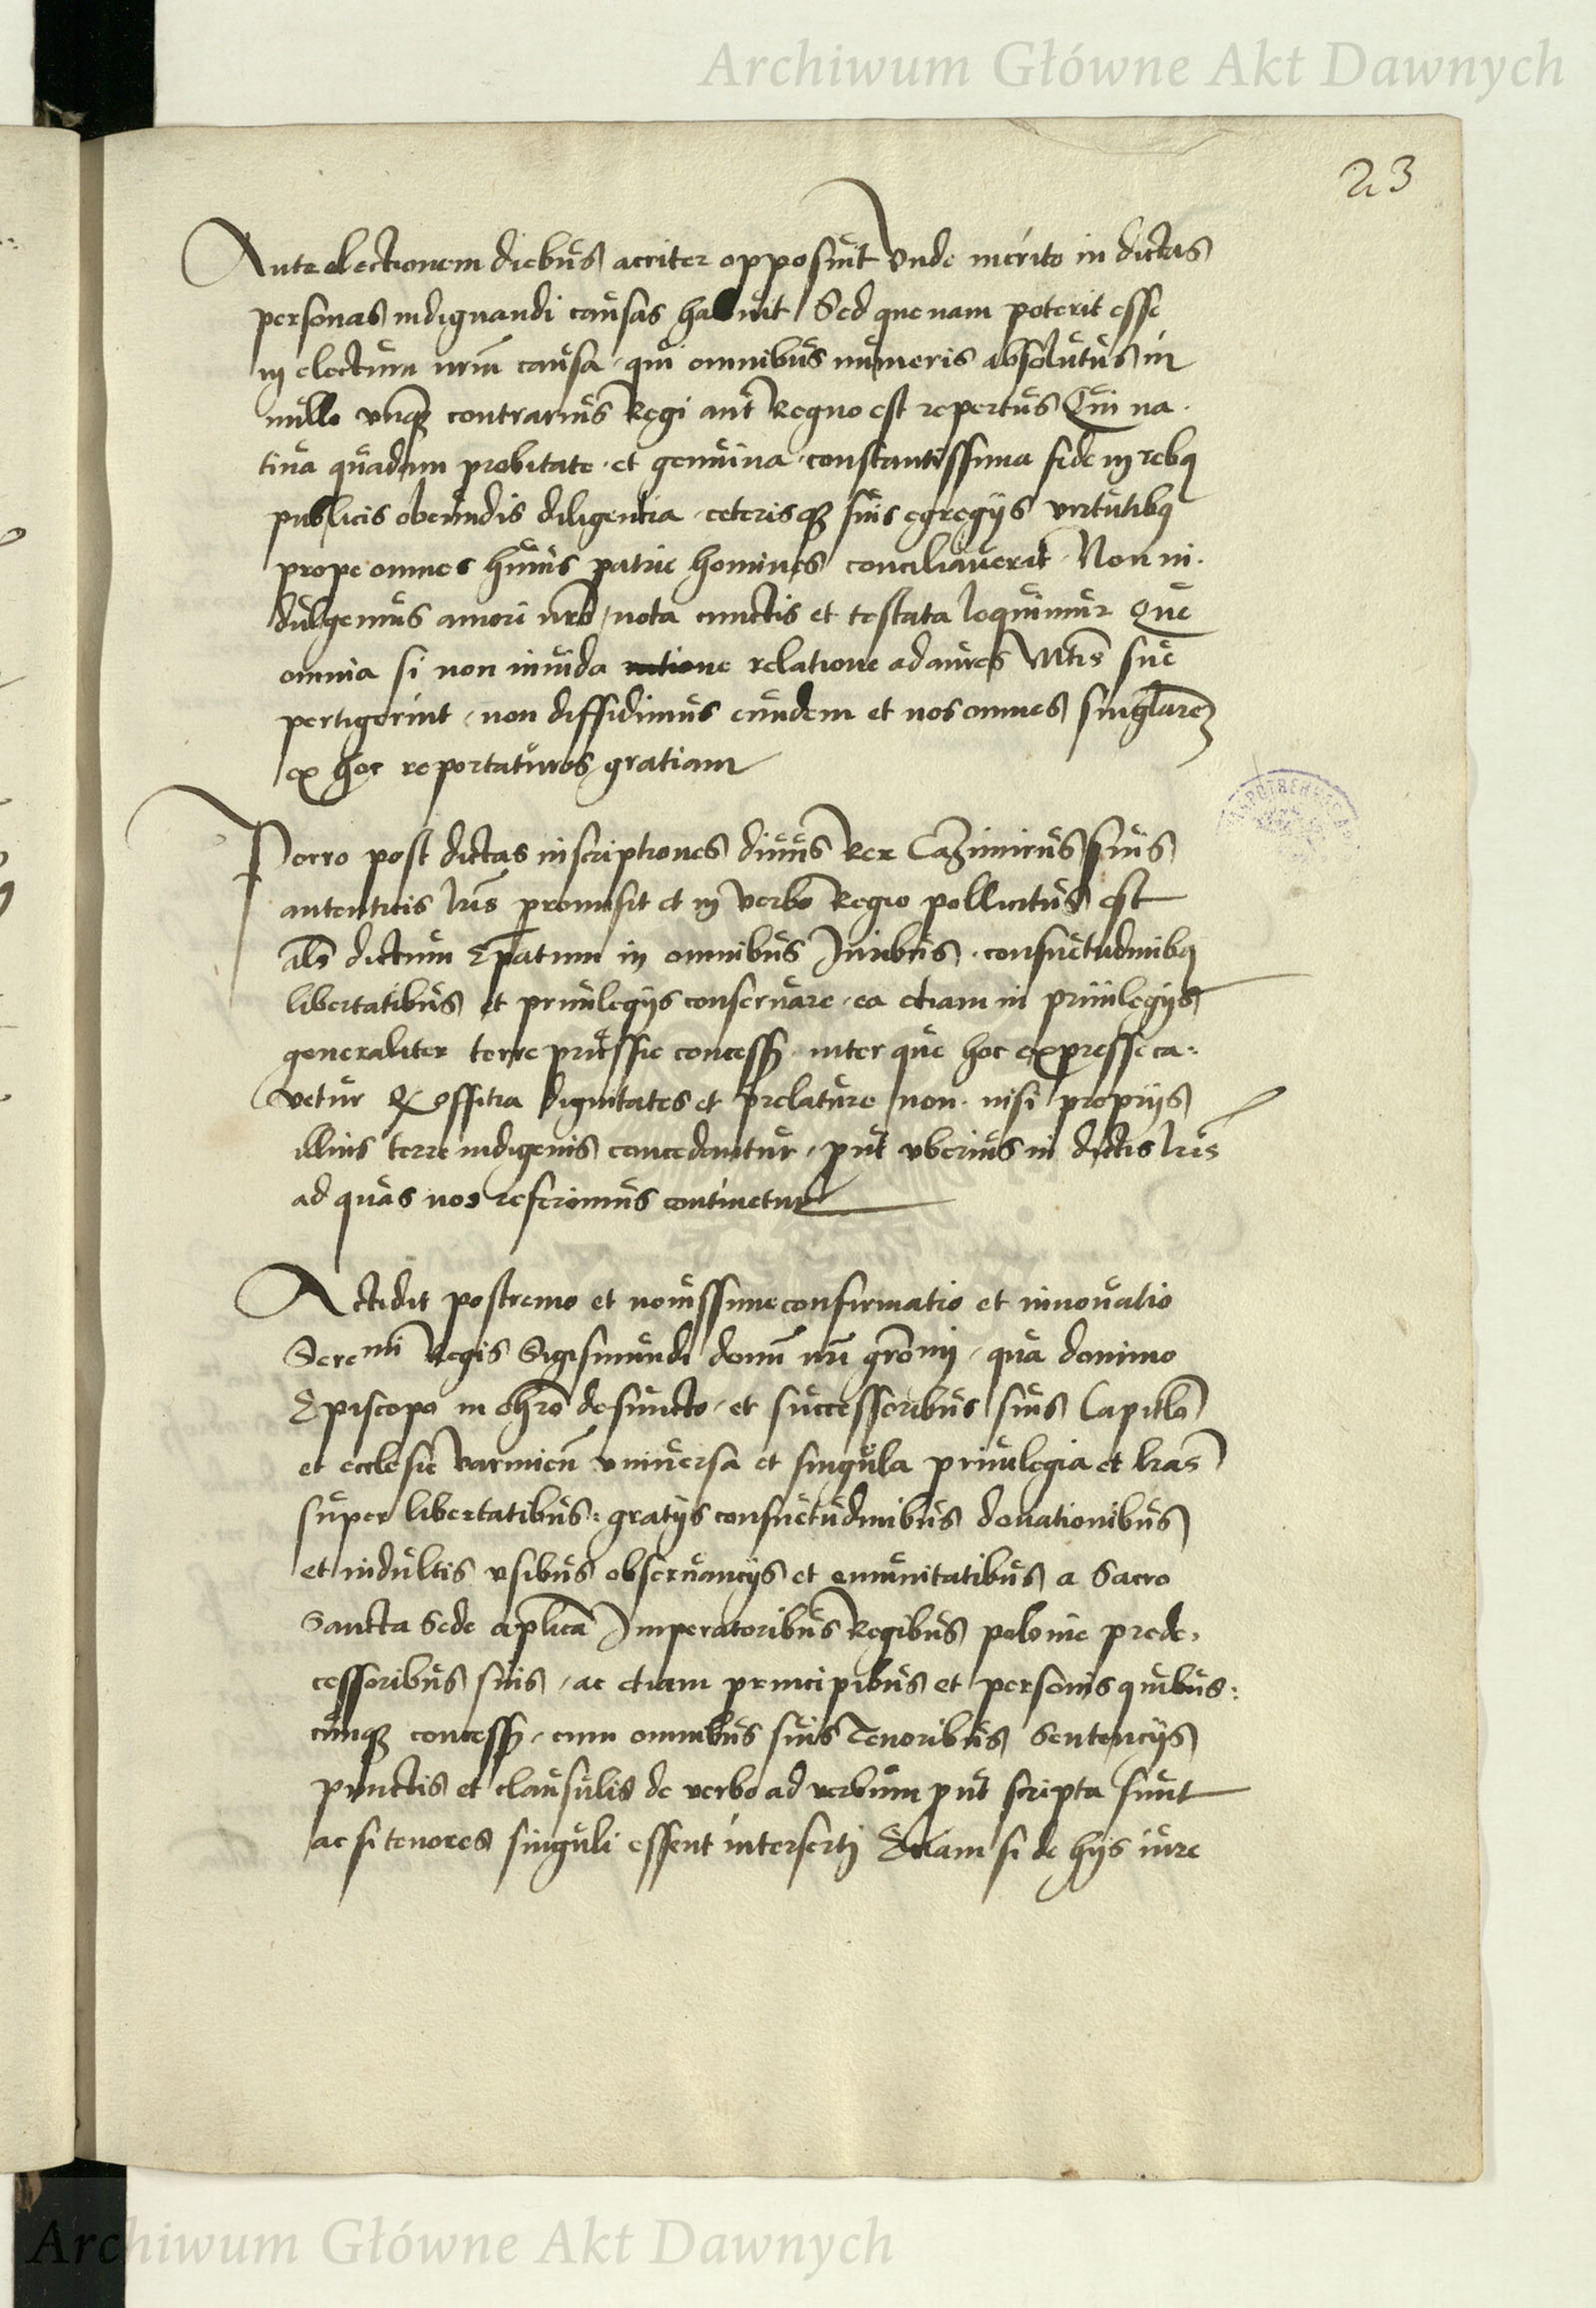 Archiwum Główne Akt Dawnych
23
Ante electionem diebus acriter opposuit Unde merito in dictas
personas indignandi causas habuit Sed que nam poterit esse
in electum nrm̄ causa, qui omnibus numeris absolutus in
nullo vnq̄ contrarius Regi aut Regno est repertus Qui na-
tiua quadam probitate et genuina constantissima fide in rebq
publicis obeundis diligentia ceterisq suis egregijs virtutibq
prope omnes huius patrie homines conciliauerit Non in-
dulgemus amori nr̄o, nota cunctis et testata loquimur Que
omnia si non inuida ratione relatione ad aures Mtis̄ sue
pertigerint, non diffidimus eundem et nos omnes singlarē
ex hoc reportaturos gratiam
Porro post dictas inscriptiones diuus Rex Cazimirus suis
autenticis lr̄is promisit et in verbo Regio pollicitus est
als̄ dictum Ep̄atum in omnibus Iuribus, consuetudinibq
libertatibus et priuilegijs conseruare, ea etiam in priuilegijs
generaliter terre prussie concess, inter que hoc expresse ca-
vetur Q offitia dignitates et prelature non nisi proprijs
illius terre indigenis concedantur, put vberius in dictis lr̄is
ad quas nos referimus continetur
Accidit postremo et nouissime confirmatio et innouatio
Sereᵐⁱ Regis Sigismundi domī nrī gr̄omi, qua domino
Episcopo in chr̄o defuncto, et successoribus suis Capitlo
et ecclesie varmien̄ vniuersa et singula priuilegia et lr̄as
super libertatibus: gratijs consuetudinibus donationibus
et indultis vsibus obseruancijs et emunitatibus a Sacro
Sancta Sede ap̄lica Imperatoribus Regibus polonie prede-
cessoribus suis, ac etiam principibus et personis quibus:
cunq concess, cum omnibus suis Tenoribus Sentencijs
punctis et clausulis de verbo ad verbum put scripta sunt
ac si tenores singuli essent inserti Etiam si de hijs iure
Archiwum Główne Akt Dawnych